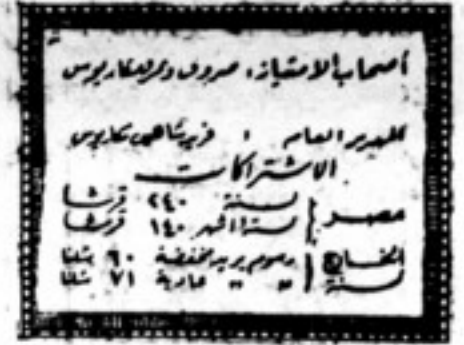 أصحاب الامتياز: صروف ونمر ومكاريوس
المدير العام : فريد شاهين مكاريوس
الاشتراكات
مصر { لسنة ٢٤٠ قرشا
لستة أشهر ١٤٠ قرشا
الخارج { رسوم بريد مخفضة ٩٠ شلنا
لسنة { " " عادية ٧١ شلنا